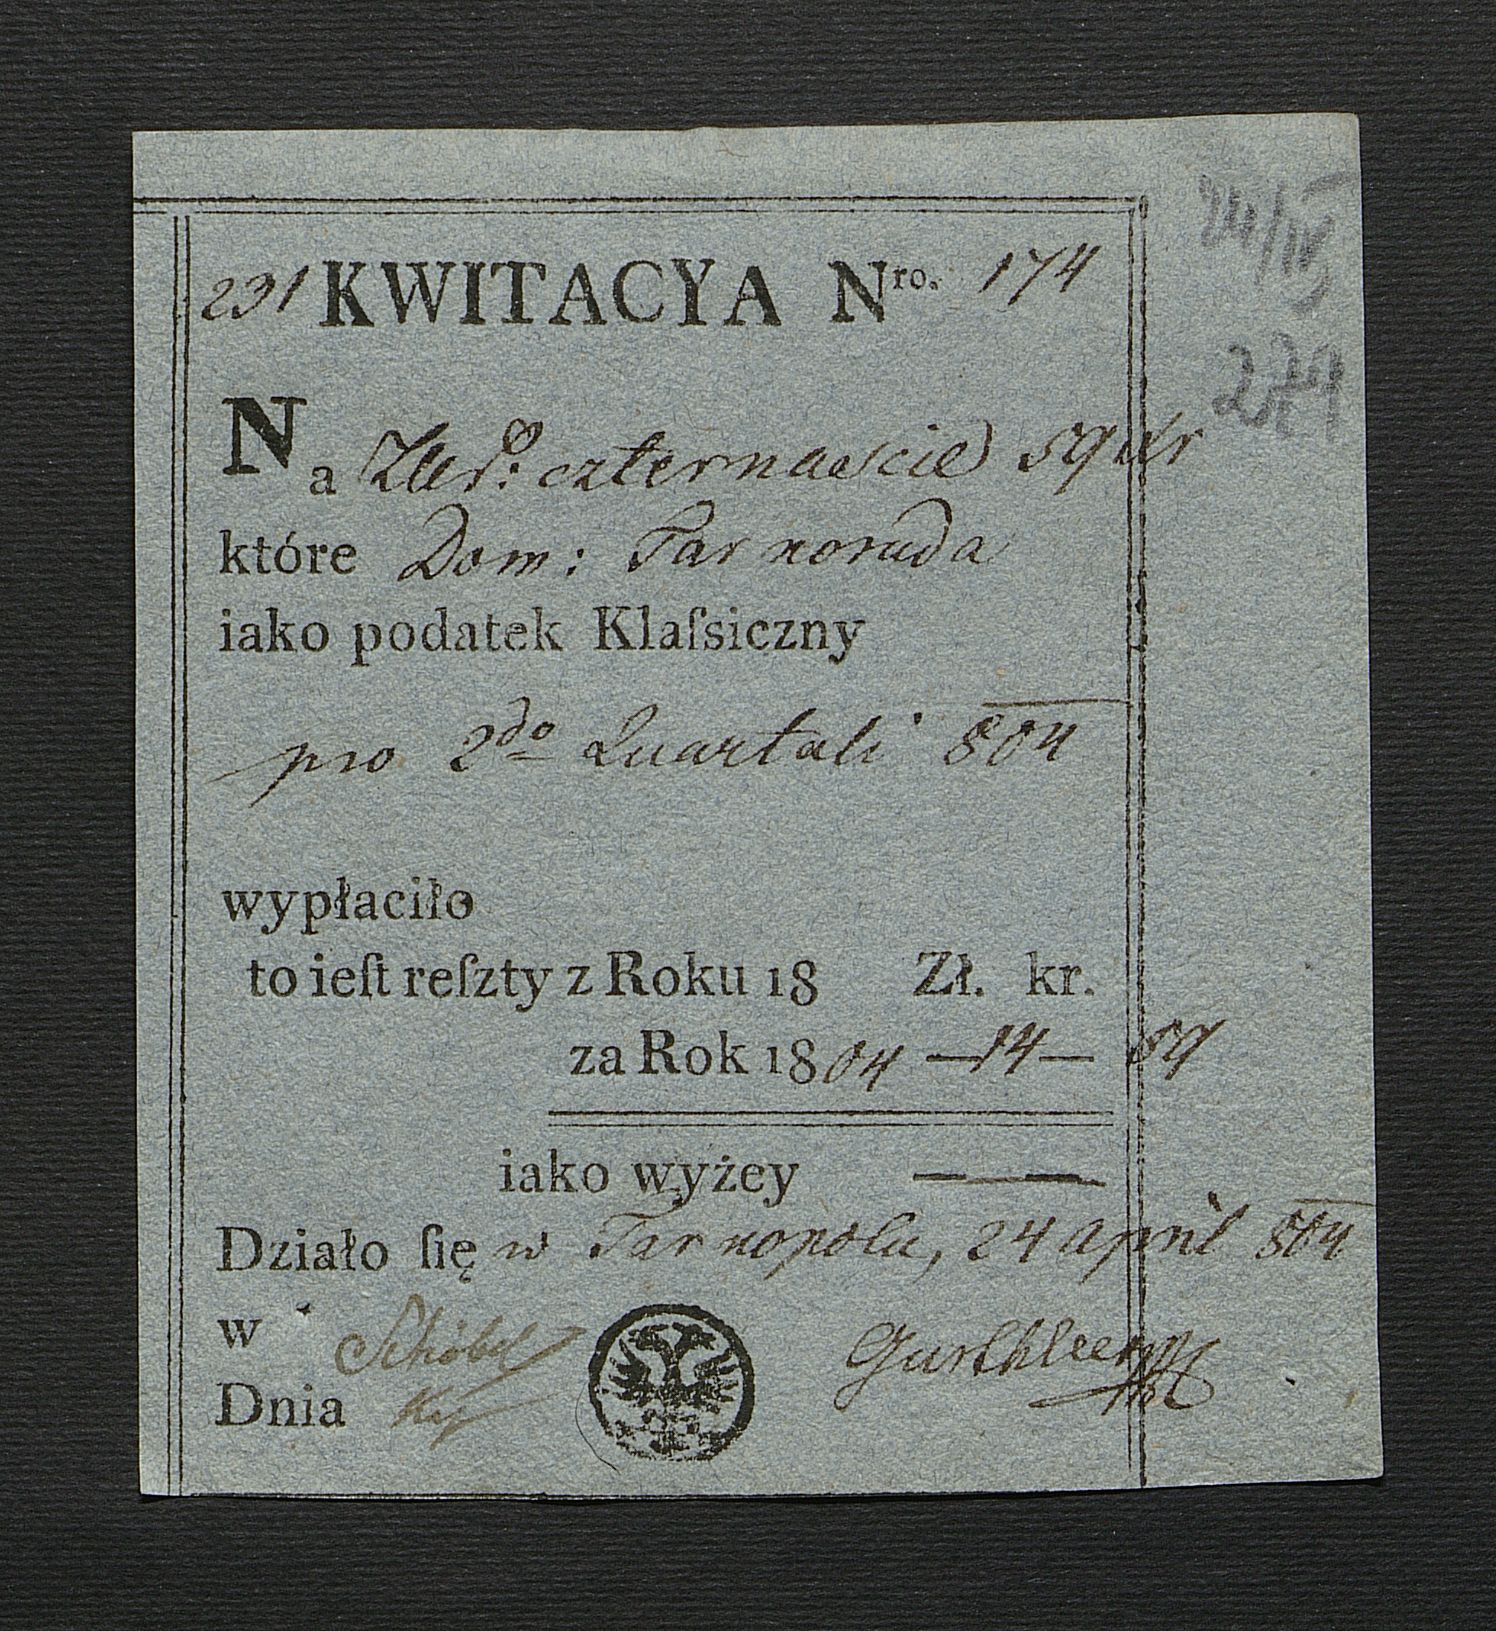 24/IV
231 KWITACYA Nro. 174
274
Na Złr: czternaście 59 kr
które Dom: Tarnoruda
iako podatek Klaſsiczny
pro 2do Quartali 804
wypłaciło
to ieſt reſzty z Roku 18 Zł. kr.
za Rok 1804 — 14 — 59
iako wyżey — —
Działo ſię w Tarnopolu, 24 april 804
w Schöbel
Dnia